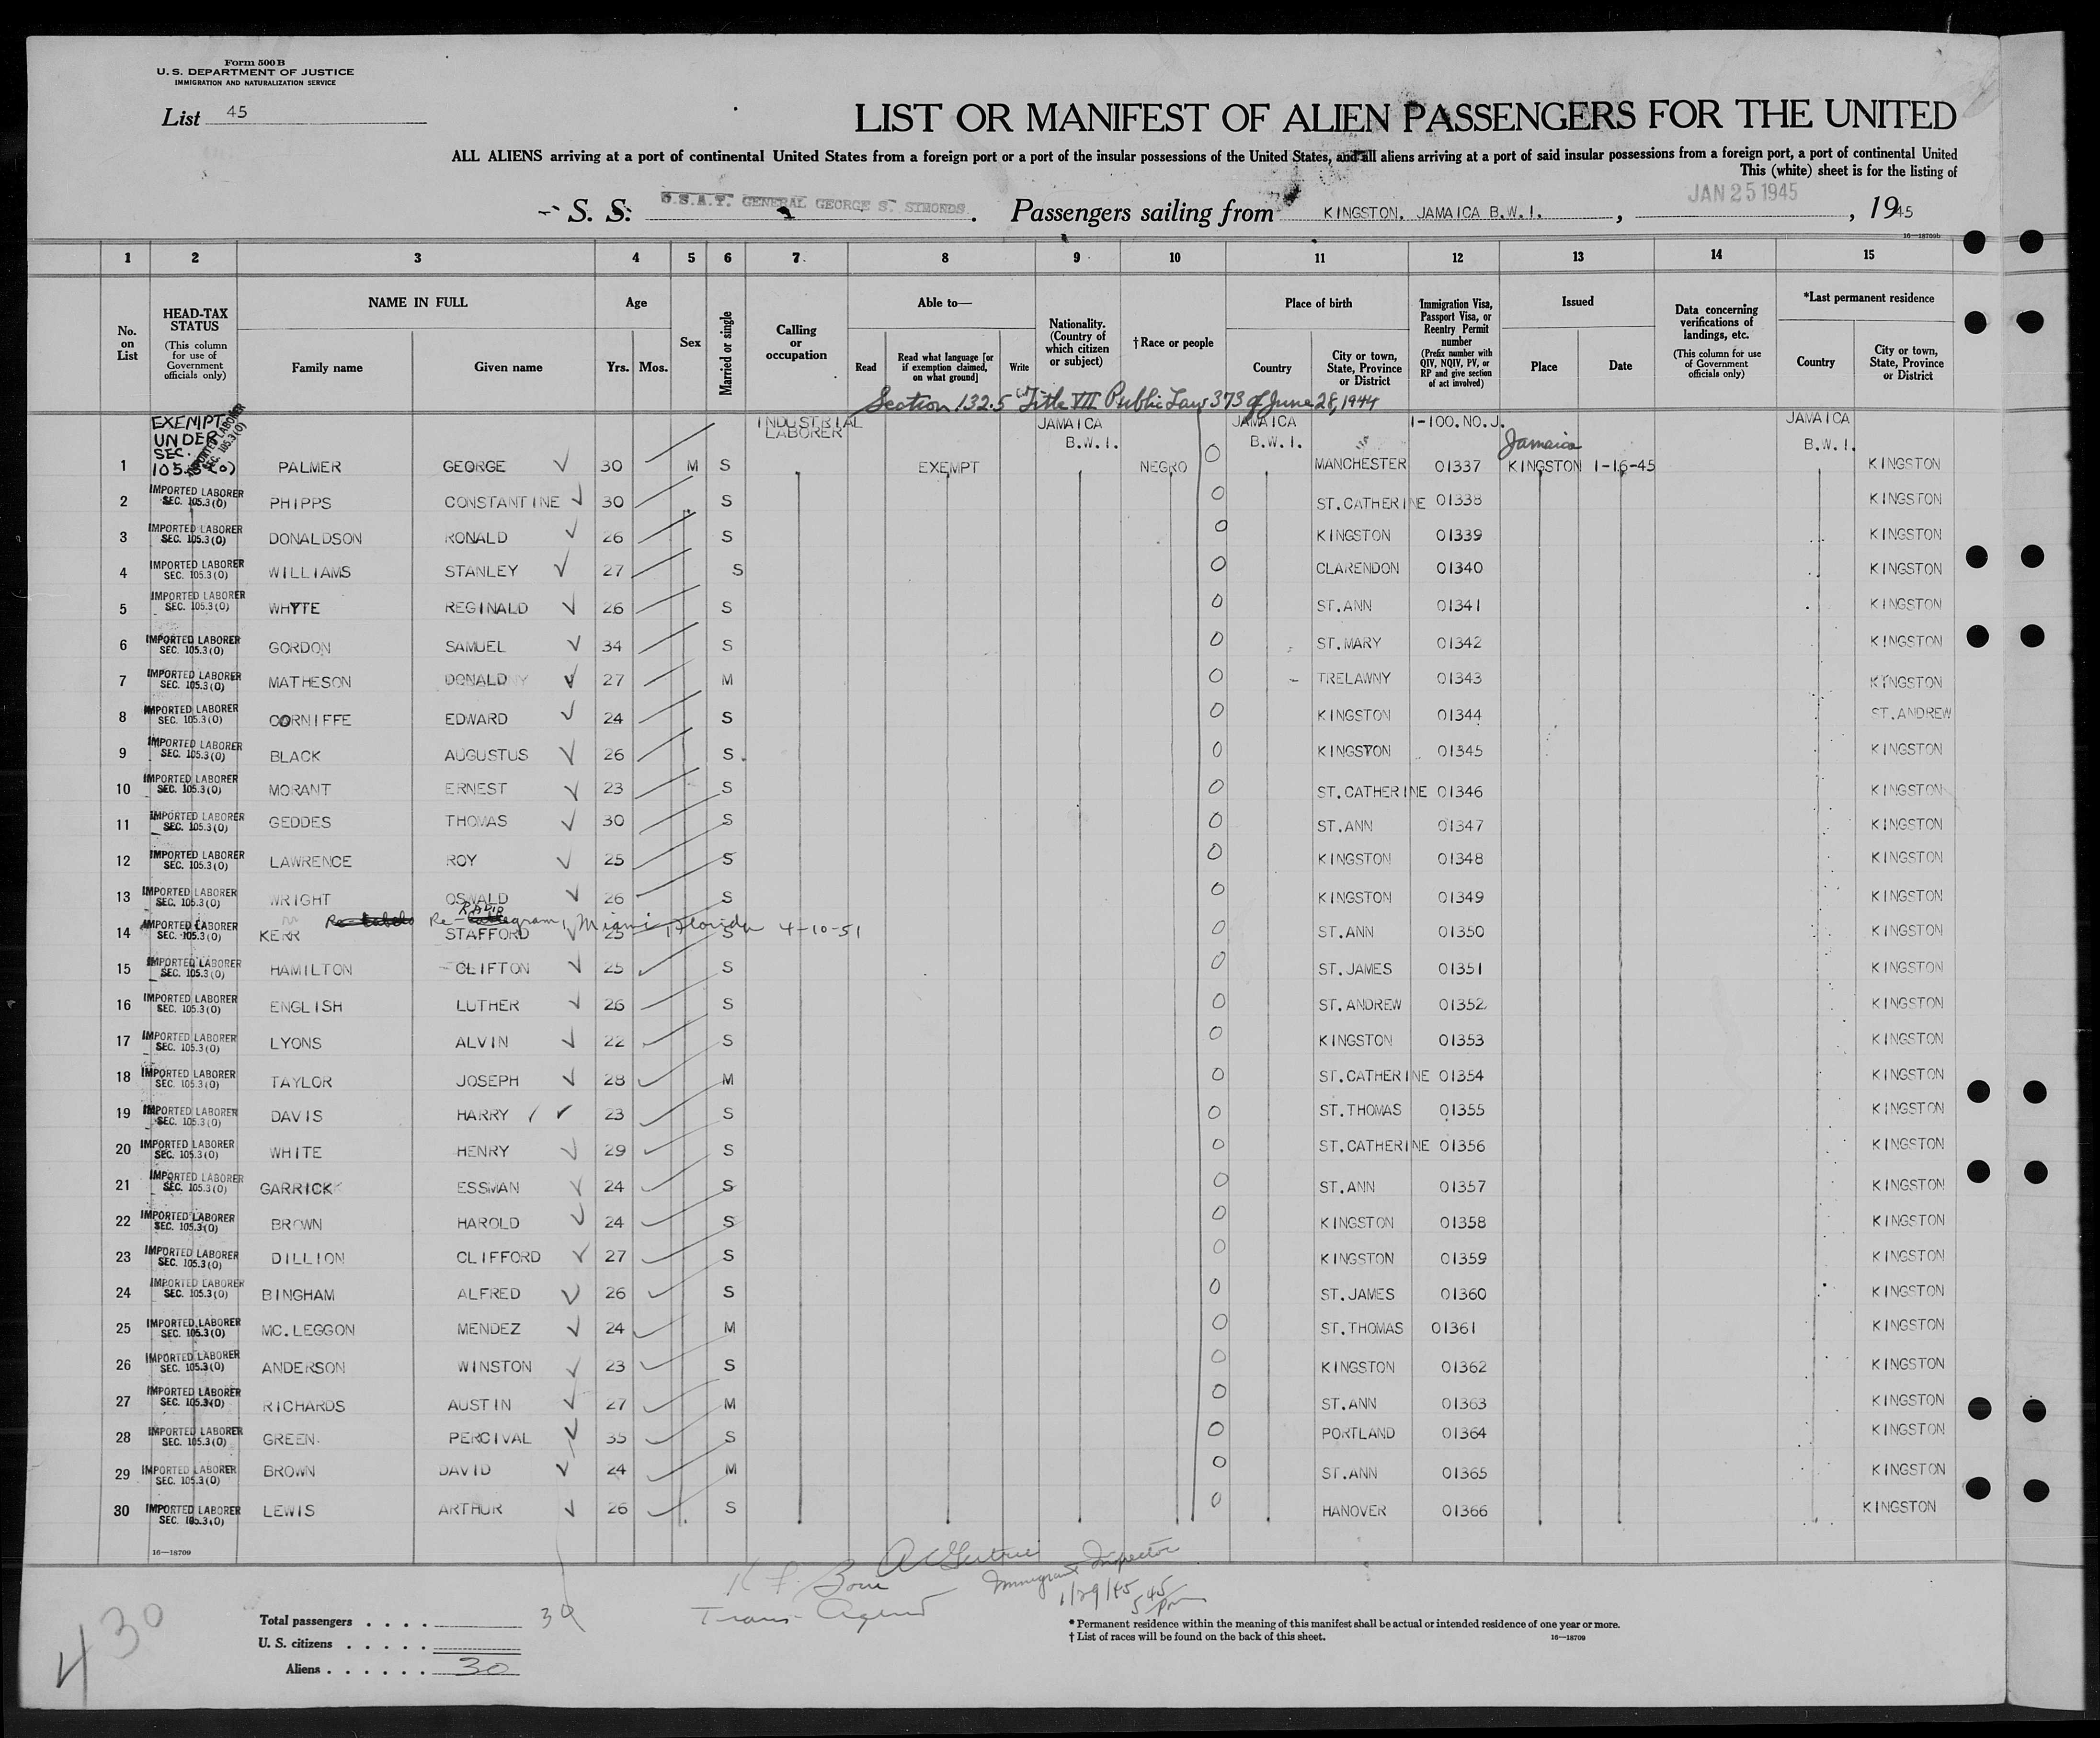 Form 500 B
U. S. DEPARTMENT OF JUSTICE
IMMIGRATION AND NATURALIZATION SERVICE
List 45
LIST OR MANIFEST OF ALIEN PASSENGERS FOR THE UNITED
ALL ALIENS arriving at a port of continental United States from a foreign port or a port of the insular possessions of the United States, and all aliens arriving at a port of said insular possessions from a foreign port, a port of continental United
This (white) sheet is for the listing of
S. S. U.S.A.T. GENERAL GEORGE S. SIMONDS. Passengers sailing from KINGSTON. JAMAICA B.W.I., JAN 25 1945, 1945
16—18709b
1 2 3 4 5 6 7 8 9 10 11 12 13 14 15
No. on List
HEAD-TAX STATUS
(This column for use of Government officials only)
NAME IN FULL
Family name
Given name
Age
Yrs.
Mos.
Sex
Married or single
Calling or occupation
Able to—
Read
Read what language [or if exemption claimed, on what ground]
Write
Nationality. (Country of which citizen or subject)
†Race or people
Place of birth
Country
City or town, State, Province or District
Immigration Visa, Passport Visa, or Reentry Permit number
(Prefix number with QIV, NQIV, PV, or RP and give section of act involved)
Issued
Place
Date
Data concerning verifications of landings, etc.
(This column for use of Government officials only)
*Last permanent residence
Country
City or town, State, Province or District
Section 132.5 Title VII Public Law 373 of June 28, 1944
EXEMPT UNDER SEC. 105.3(o) IMPORTED LABORER SEC. 105.3(O)
INDUSTRIAL LABORER JAMAICA B.W.I. JAMAICA B.W.I. I-100.NO.J. Jamaica JAMAICA B.W.I.
1 PALMER GEORGE 30 M S EXEMPT NEGRO MANCHESTER 01337 KINGSTON 1-16-45 KINGSTON
2 IMPORTED LABORER SEC. 105.3(O) PHIPPS CONSTANTINE 30 S ST.CATHERINE 01338 KINGSTON
3 IMPORTED LABORER SEC. 105.3(O) DONALDSON RONALD 26 S KINGSTON 01339 KINGSTON
4 IMPORTED LABORER SEC. 105.3(O) WILLIAMS STANLEY 27 S CLARENDON 01340 KINGSTON
5 IMPORTED LABORER SEC. 105.3(O) WHYTE REGINALD 26 S ST.ANN 01341 KINGSTON
6 IMPORTED LABORER SEC. 105.3(O) GORDON SAMUEL 34 S ST.MARY 01342 KINGSTON
7 IMPORTED LABORER SEC. 105.3(O) MATHESON DONALD 27 M TRELAWNY 01343 KINGSTON
8 IMPORTED LABORER SEC. 105.3(O) CORNIFFE EDWARD 24 S KINGSTON 01344 ST.ANDREW
9 IMPORTED LABORER SEC. 105.3(O) BLACK AUGUSTUS 26 S KINGSTON 01345 KINGSTON
10 IMPORTED LABORER SEC. 105.3(O) MORANT ERNEST 23 S ST.CATHERINE 01346 KINGSTON
11 IMPORTED LABORER SEC. 105.3(O) GEDDES THOMAS 30 S ST.ANN 01347 KINGSTON
12 IMPORTED LABORER SEC. 105.3(O) LAWRENCE ROY 25 S KINGSTON 01348 KINGSTON
13 IMPORTED LABORER SEC. 105.3(O) WRIGHT OSWALD 26 S KINGSTON 01349 KINGSTON
Re-RADIOgram, Miami, Florida 4-10-51
14 IMPORTED LABORER SEC. 105.3(O) KERR STAFFORD 25 S ST.ANN 01350 KINGSTON
15 IMPORTED LABORER SEC. 105.3(O) HAMILTON CLIFTON 25 S ST.JAMES 01351 KINGSTON
16 IMPORTED LABORER SEC. 105.3(O) ENGLISH LUTHER 26 S ST.ANDREW 01352 KINGSTON
17 IMPORTED LABORER SEC. 105.3(O) LYONS ALVIN 22 S KINGSTON 01353 KINGSTON
18 IMPORTED LABORER SEC. 105.3(O) TAYLOR JOSEPH 28 M ST.CATHERINE 01354 KINGSTON
19 IMPORTED LABORER SEC. 105.3(O) DAVIS HARRY 23 S ST.THOMAS 01355 KINGSTON
20 IMPORTED LABORER SEC. 105.3(O) WHITE HENRY 29 S ST.CATHERINE 01356 KINGSTON
21 IMPORTED LABORER SEC. 105.3(O) GARRICK ESSMAN 24 S ST.ANN 01357 KINGSTON
22 IMPORTED LABORER SEC. 105.3(O) BROWN HAROLD 24 S KINGSTON 01358 KINGSTON
23 IMPORTED LABORER SEC. 105.3(O) DILLION CLIFFORD 27 S KINGSTON 01359 KINGSTON
24 IMPORTED LABORER SEC. 105.3(O) BINGHAM ALFRED 26 S ST.JAMES 01360 KINGSTON
25 IMPORTED LABORER SEC. 105.3(O) MC.LEGGON MENDEZ 24 M ST.THOMAS 01361 KINGSTON
26 IMPORTED LABORER SEC. 105.3(O) ANDERSON WINSTON 23 S KINGSTON 01362 KINGSTON
27 IMPORTED LABORER SEC. 105.3(O) RICHARDS AUSTIN 27 M ST.ANN 01363 KINGSTON
28 IMPORTED LABORER SEC. 105.3(O) GREEN PERCIVAL 35 S PORTLAND 01364 KINGSTON
29 IMPORTED LABORER SEC. 105.3(O) BROWN DAVID 24 M ST.ANN 01365 KINGSTON
30 IMPORTED LABORER SEC. 105.3(O) LEWIS ARTHUR 26 S HANOVER 01366 KINGSTON
16—18709
Immigrant Inspector
1/29/45
5 45 pm
Trans- Agent
430
Total passengers . . . . 30
U. S. citizens . . . . .
Aliens . . . . . . 30
* Permanent residence within the meaning of this manifest shall be actual or intended residence of one year or more.
† List of races will be found on the back of this sheet.
16—18709